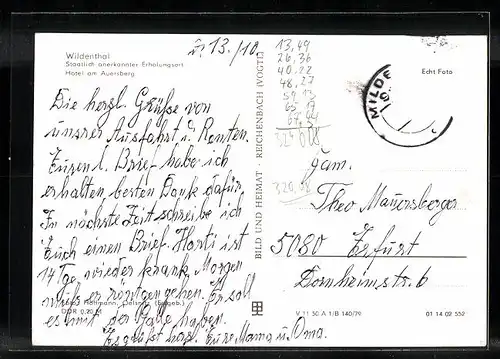 Wildenthal
Staatlich anerkannter Erholungsort
Hotel am Auersberg
d. 13./10
Die herzl. Grüße von
unsrer Ausfahrt d. Renten.
Euren l. Brief habe ich
erhalten besten Dank dafür.
In nächste Zeit schreibe ich
Euch einen Brief. Horsti ist
14 Tge wieder krank, Morgen
muß er röntgen gehen. Er soll
es mit der Galle haben.
Es grüßt herzl. Eure Mama u. Oma.
Hoffmann, Oelsnitz (Erzgeb.)
DDR 0,20 M
BILD UND HEIMAT · REICHENBACH (VOGTL)
13,49
26,36
40,22
48,27
59,13
65,17
320,08
Echt Foto
MILDE
Fam.
Theo Mauersberger
5080 Erfurt
Dornheimstr. 6
V 11 50 A 1/B 140/79
01 14 02 552